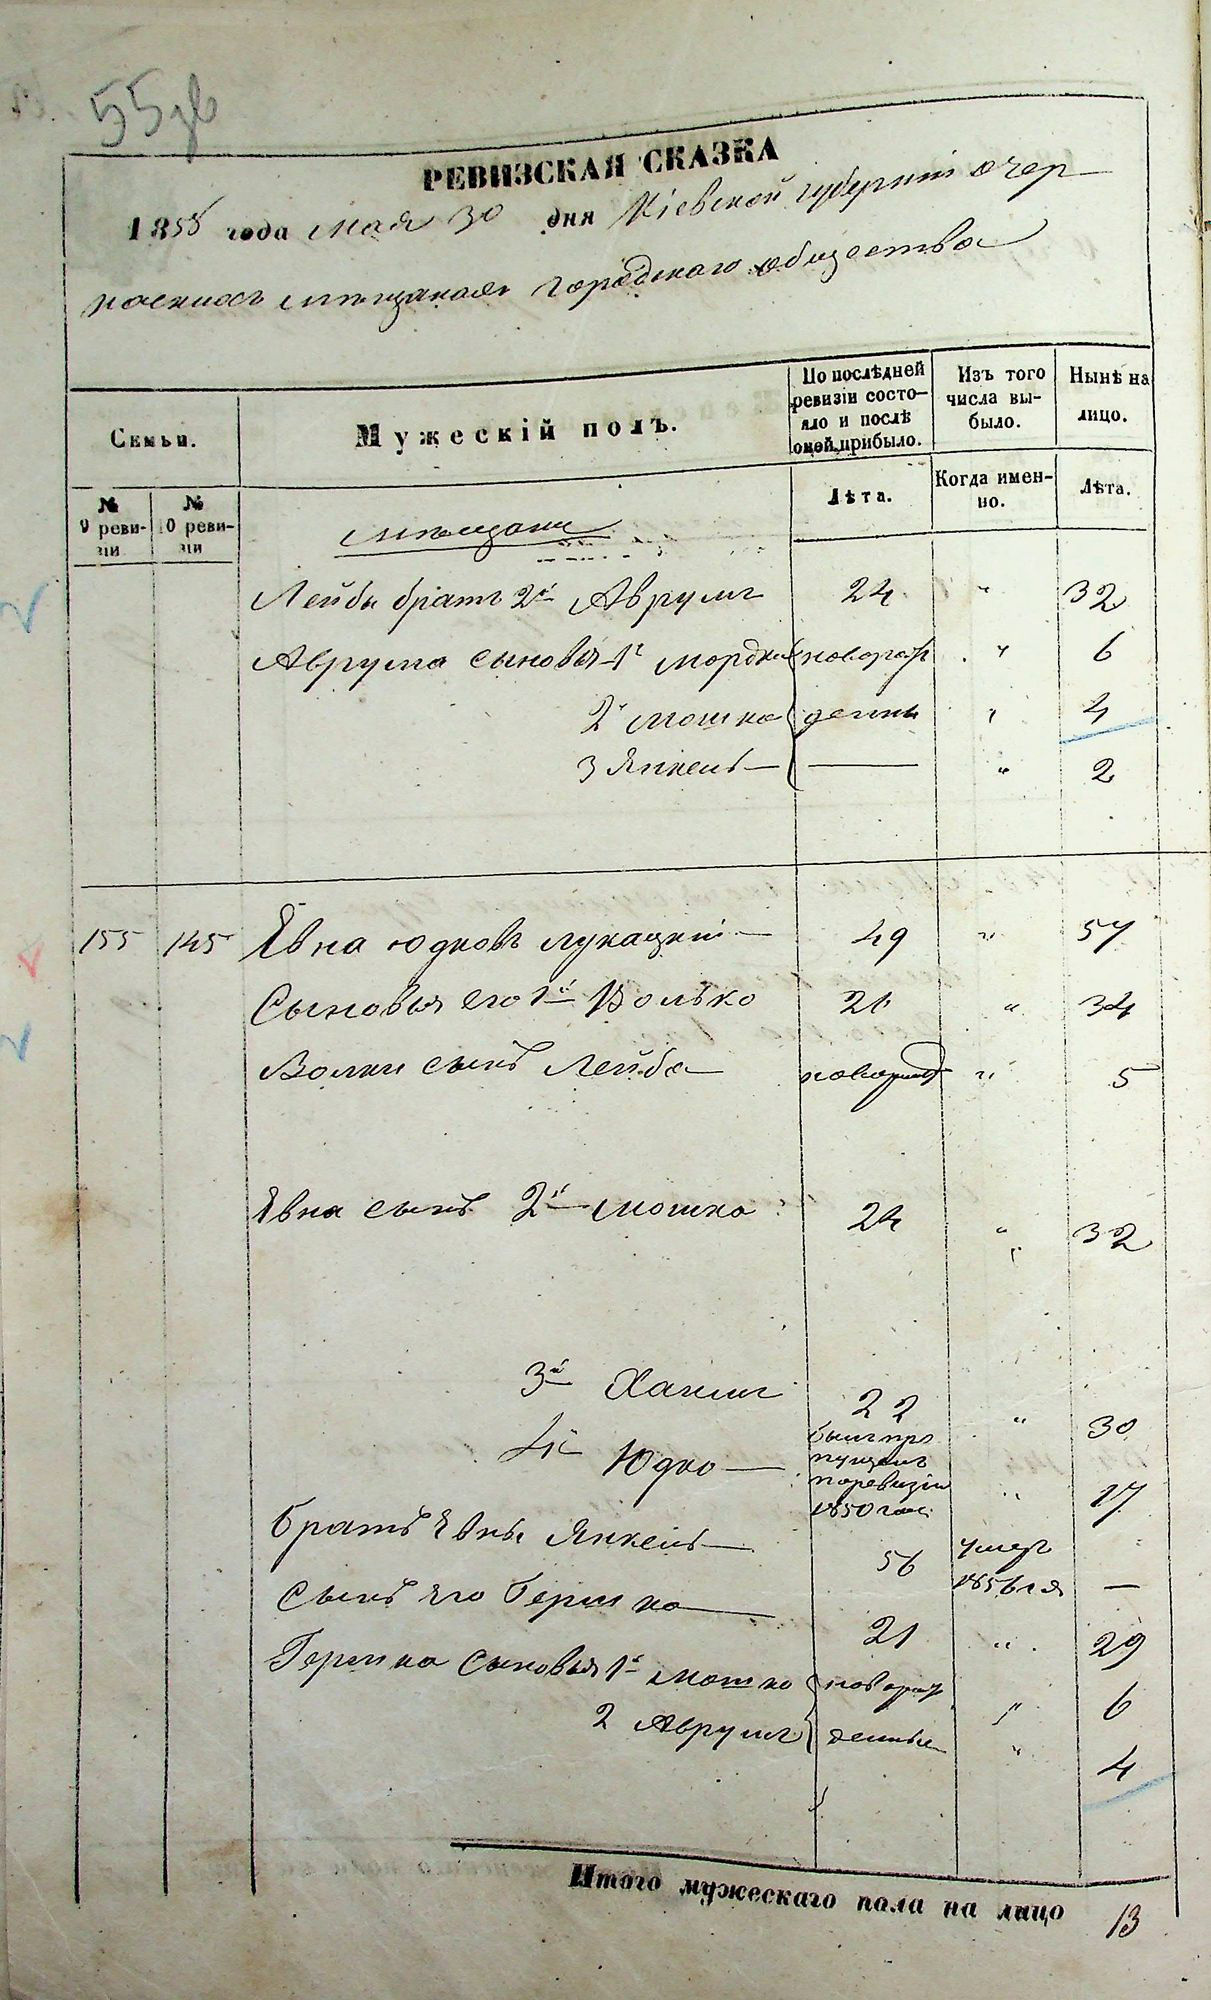 55
РЕВИЗСКАЯ СКАЗКА
1858 года мая 30 дня Кіевской губерніи
мѣщанская городскаго общества
Семьи.
Мужескій полъ.
По послѣдней ревизіи состояло и послѣ оной прибыло.
Изъ того числа выбыло.
Нынѣ на лицо.
№ 9 ревизіи
№ 10 ревизіи
Лѣта.
Когда именно.
Лѣта.
мѣщани
Лейбы братъ 2й Аврумъ 24 " 32
Аврума сыновья 1й Мордко новорож " 6
2й Мошко денны " 4
3 Янкель — " 2
155 145 Явна Юдковъ Лукацкій 49 " 57
Сыновья его 1й Волько 26 " 34
Вольки сынъ Лейба новорожд " 5
Явна сынъ 2й Мошко 24 " 32
3й Хаимъ 22 " 30
4й Юдко былъ пропущенъ поревизіи 1850 года " 17
Братъ Явны Янкель 56 умеръ 1856 г. —
Сынъ его Гершко 21 " 29
Гершка сыновья 1й Мошко новорож " 6
2 Аврумъ денные " 4
Итого мужескаго пола на лицо 13